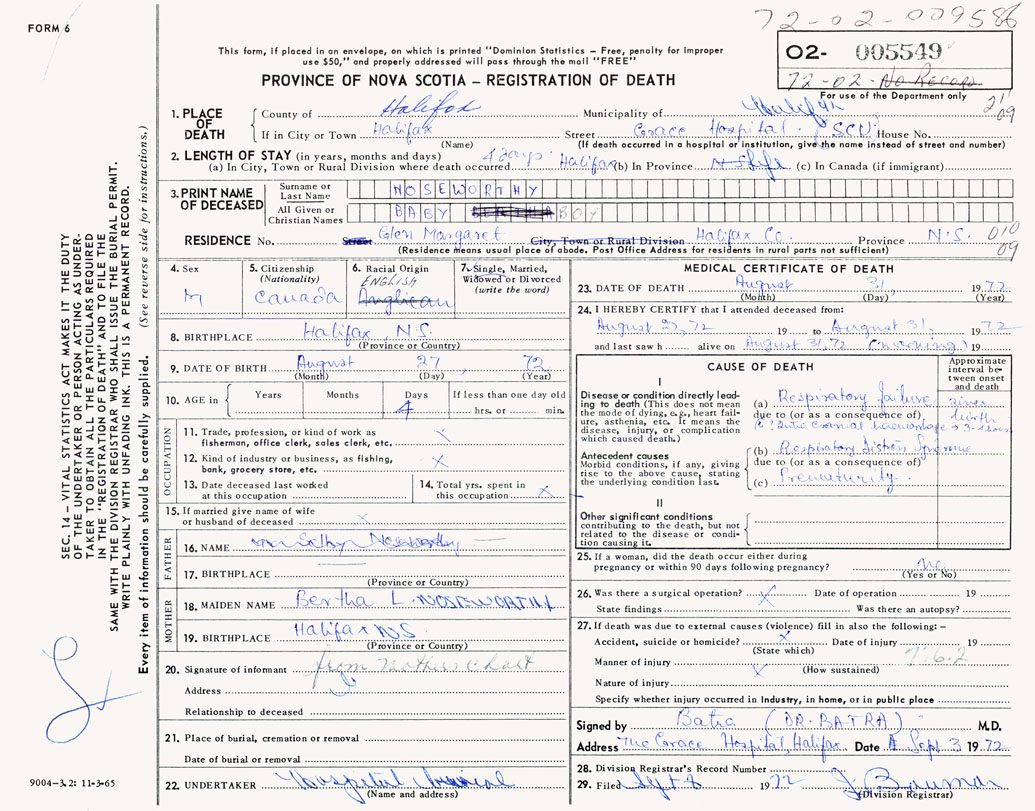 FORM 6
72-02-009586
This form, if placed in an envelope, on which is printed "Dominion Statistics – Free, penalty for improper
use $50," and properly addressed will pass through the mail "FREE"
02- 005549
72-02-No Record
PROVINCE OF NOVA SCOTIA – REGISTRATION OF DEATH
For use of the Department only
1. PLACE OF DEATH
County of Halifax Municipality of Halifax
If in City or Town Halifax Street Grace Hospital (SCU) House No.
(Name) (If death occurred in a hospital or institution, give the name instead of street and number)
2. LENGTH OF STAY (in years, months and days)
(a) In City, Town or Rural Division where death occurred 4 days Halifax (b) In Province (c) In Canada (if immigrant)
3. PRINT NAME OF DECEASED
Surname or Last Name NOSEWORTHY
All Given or Christian Names BABY BOY
RESIDENCE No. Street Glen Margaret City, Town or Rural Division Halifax Co. Province N.S.
(Residence means usual place of abode. Post Office Address for residents in rural parts not sufficient)
010
09
4. Sex M
5. Citizenship (Nationality) Canada
6. Racial Origin ENGLISH Anglican
7. Single, Married, Widowed or Divorced (write the word)
8. BIRTHPLACE Halifax, N.S.
(Province or Country)
9. DATE OF BIRTH August 27, 72
(Month) (Day) (Year)
10. AGE in Years Months Days If less than one day old
4 hrs. or min.
OCCUPATION
11. Trade, profession, or kind of work as
fisherman, office clerk, sales clerk, etc. x
12. Kind of industry or business, as fishing,
bank, grocery store, etc. x
13. Date deceased last worked
at this occupation
14. Total yrs. spent in
this occupation x
15. If married give name of wife
or husband of deceased x
FATHER
16. NAME
17. BIRTHPLACE
(Province or Country)
MOTHER
18. MAIDEN NAME Bertha L. NOSEWORTHY
19. BIRTHPLACE Halifax NS
(Province or Country)
20. Signature of informant from Mothers Chart
Address
Relationship to deceased
21. Place of burial, cremation or removal
Date of burial or removal
22. UNDERTAKER Hospital Burial
(Name and address)
MEDICAL CERTIFICATE OF DEATH
23. DATE OF DEATH August 31, 1972
(Month) (Day) (Year)
24. I HEREBY CERTIFY that I attended deceased from:
August 27, 72 19 to August 31, 1972
and last saw h alive on August 31, 72 (morning) 19
CAUSE OF DEATH
Approximate interval between onset and death
I
Disease or condition directly leading to death (This does not mean the mode of dying, e.g., heart failure, asthenia, etc. It means the disease, injury, or complication which caused death.)
(a) Respiratory failure since birth
due to (or as a consequence of)
Antecedent causes
Morbid conditions, if any, giving rise to the above cause, stating the underlying condition last.
(b) Respiratory Distress Syndrome
due to (or as a consequence of)
(c) Prematurity
II
Other significant conditions
contributing to the death, but not related to the disease or condition causing it.
25. If a woman, did the death occur either during
pregnancy or within 90 days following pregnancy? No
(Yes or No)
26. Was there a surgical operation? x Date of operation 19
State findings Was there an autopsy?
27. If death was due to external causes (violence) fill in also the following: –
Accident, suicide or homicide? x Date of injury 19
(State which)
776.2
Manner of injury
(How sustained)
x
Nature of injury
Specify whether injury occurred in Industry, in home, or in public place
Signed by Batra (DR. BATRA) M.D.
Address The Grace Hospital, Halifax Date Sept 3 1972
28. Division Registrar's Record Number
29. Filed Sept 8 1972
(Division Registrar)
SEC. 14 – VITAL STATISTICS ACT MAKES IT THE DUTY
OF THE UNDERTAKER OR PERSON ACTING AS UNDER-
TAKER TO OBTAIN ALL THE PARTICULARS REQUIRED
IN THE "REGISTRATION OF DEATH" AND TO FILE THE
SAME WITH THE DIVISION REGISTRAR WHO SHALL ISSUE THE BURIAL PERMIT.
WRITE PLAINLY WITH UNFADING INK. THIS IS A PERMANENT RECORD.
Every item of information should be carefully supplied. (See reverse side for instructions.)
9004-3.2: 11-3-65